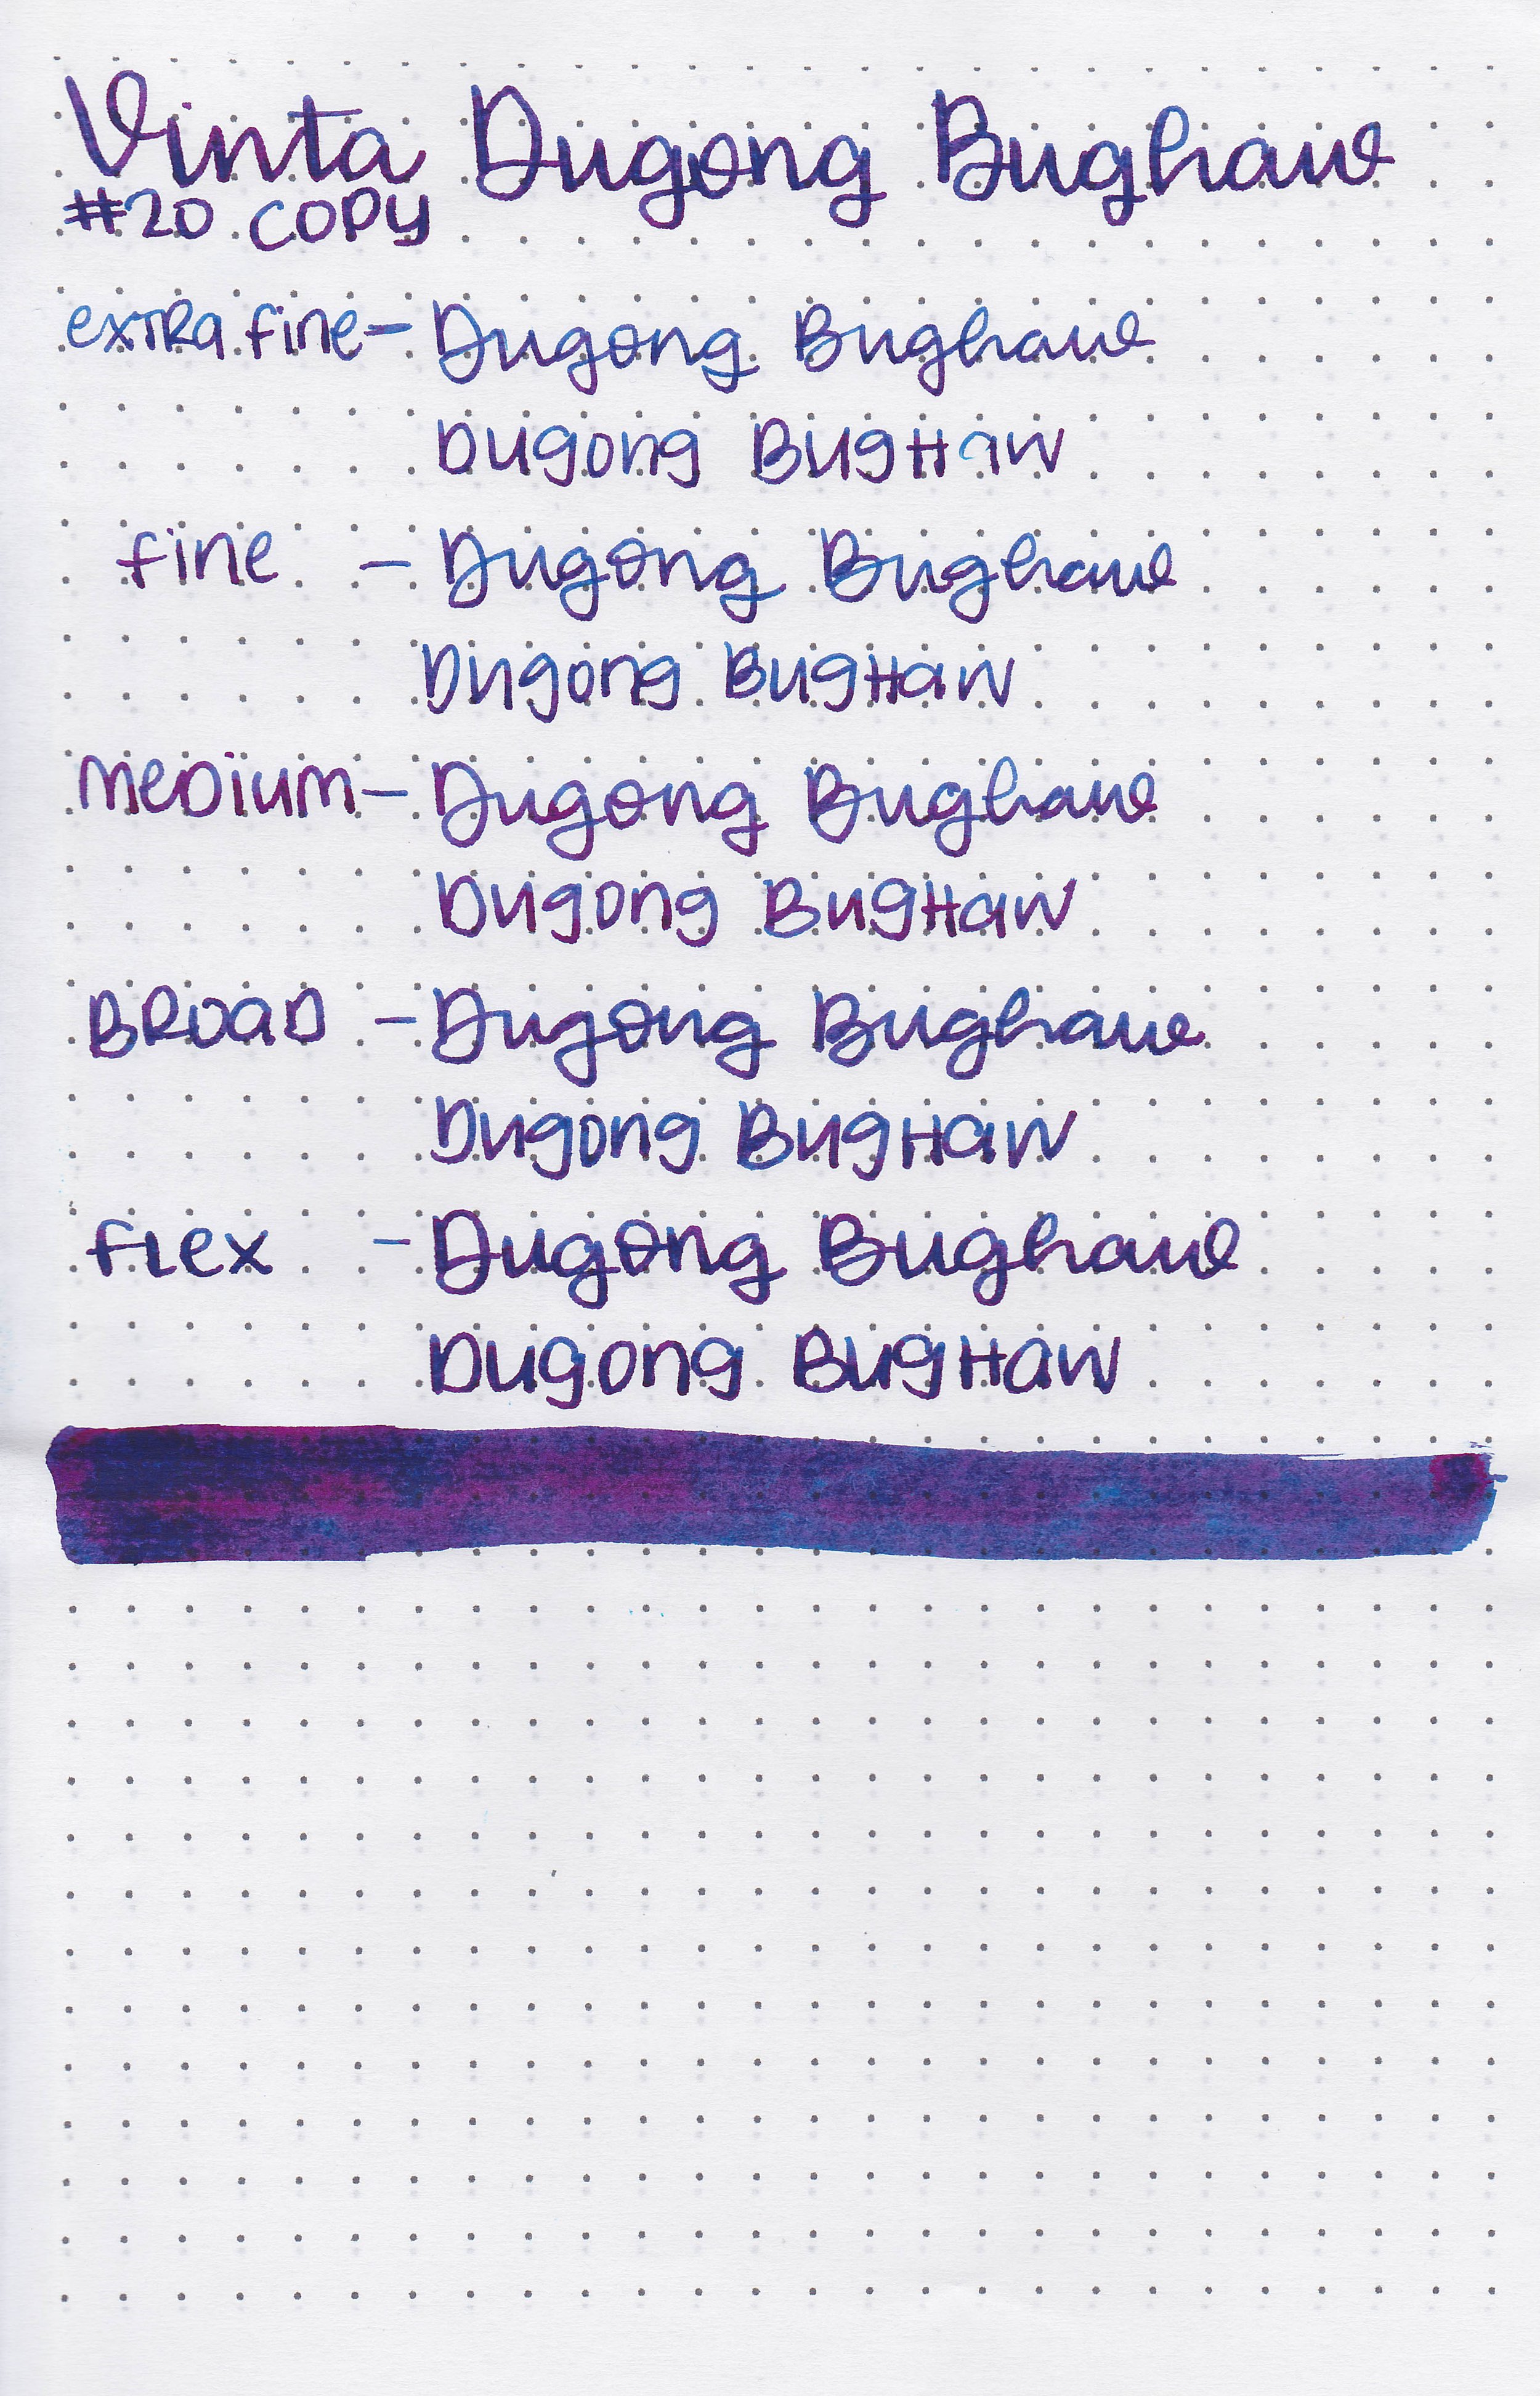 Vinta Dugong Bughaw
#20 COPY
extra fine - Dugong Bughaw
Dugong BugHaw
fine - Dugong Bughaw
Dugong BugHaw
Medium - Dugong Bughaw
Dugong BugHaw
BROAD - Dugong Bughaw
Dugong BugHaw
flex - Dugong Bughaw
Dugong BugHaw